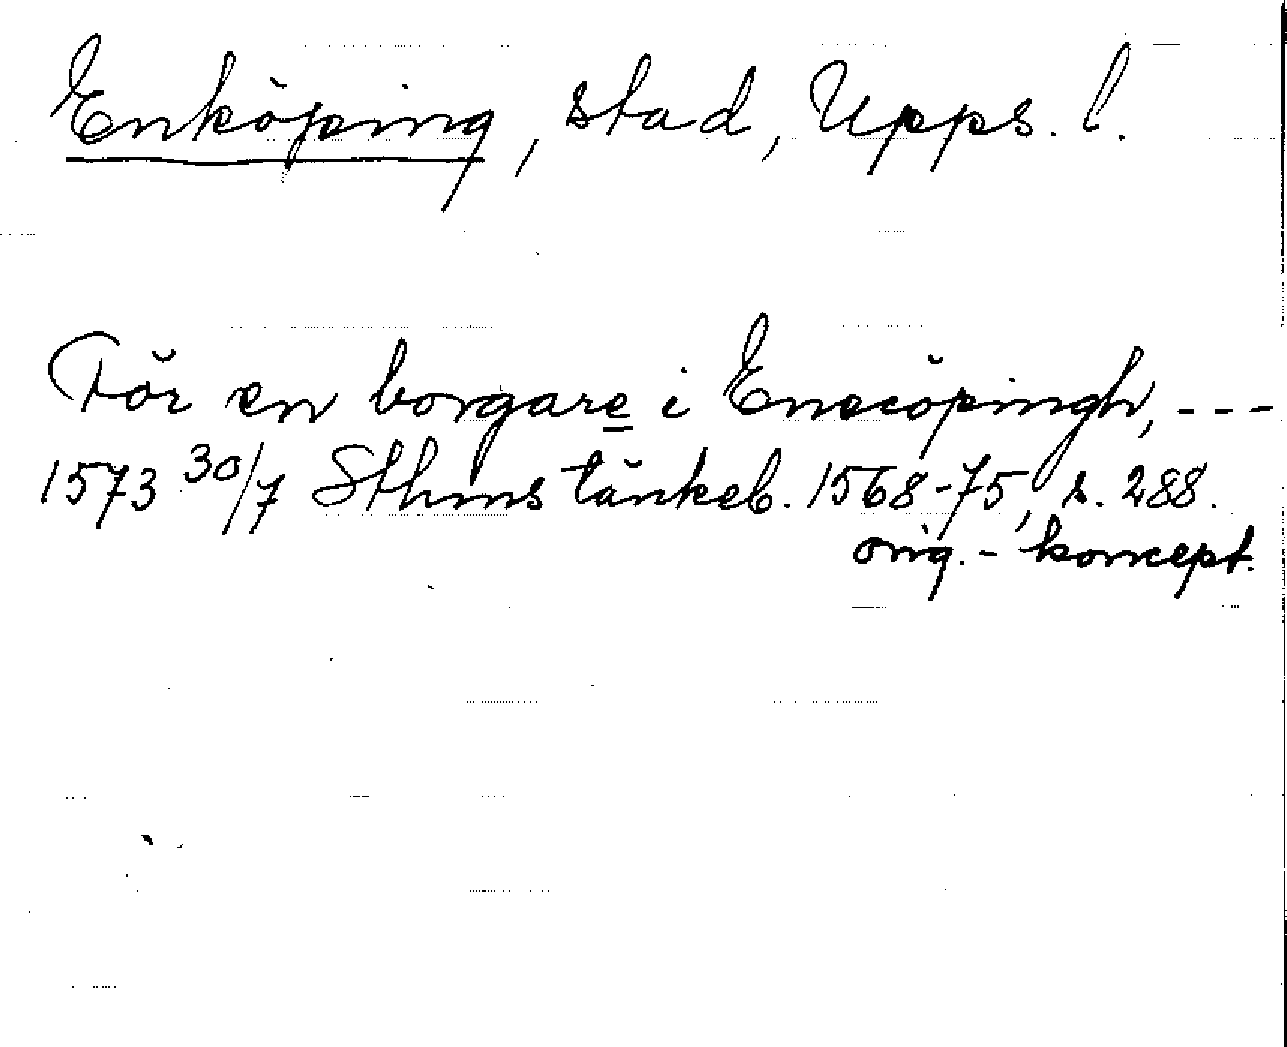 Enköping, stad, Upps. l.
För en borgare i Enecöpingh, ---
1573 30/7 Sthms tänkeb. 1568-75, s. 288.
orig. - koncept.